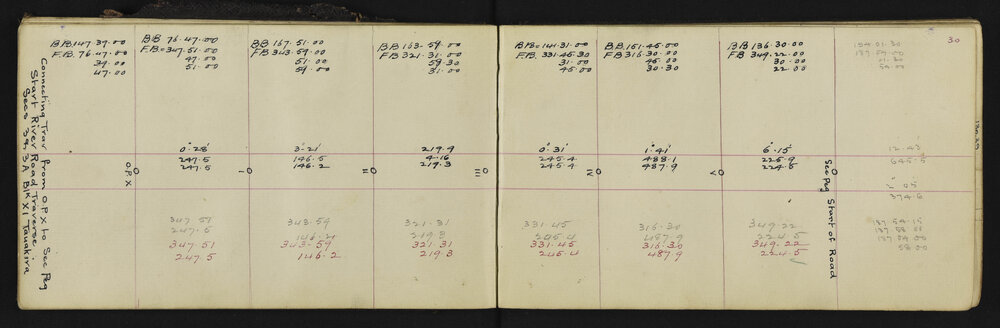 Connecting Trav from O.P.X to Sec Peg
Start River Road Traverse.
Secs 3 & 3A Blk XI Tauakira
B.B. 147.39.00
F.B. 76.47.00
39.00
47.00
O.P.X
B.B 76.47.00
F.B. 347.51.00
47.00
51.00
0°28'
247.5
247.5
347.51
247.5
347.51
247.5
I
B.B 167.51.00
F.B 343.59.00
51.00
59.00
3°21'
146.5
146.2
343.59
146.21
343.59
146.2
II
B.B 163.59.00
F.B 321.31.00
59.30
31.00
219.4
4.16
219.3
321.31
219.3
321.31
219.3
III
B.B. 141.31.00
F.B. 331.45.30
31.00
45.00
0°31'
245.4
245.4
331.45
245.4
331.45
245.4
IV
B.B. 151.45.00
F.B 316.30.00
45.00
30.30
1°41'
488.1
487.9
316.30
487.9
316.30
487.9
V
B.B 136.30.00
F.B 349.22.00
30.00
22.00
6°15'
225.9
224.5
349.22
224.5
349.22
224.5
Sec Peg Start of Road
30
12.43
645.5
2.05
374.6
187.54.15
187.58.01
187.04.00
58.00